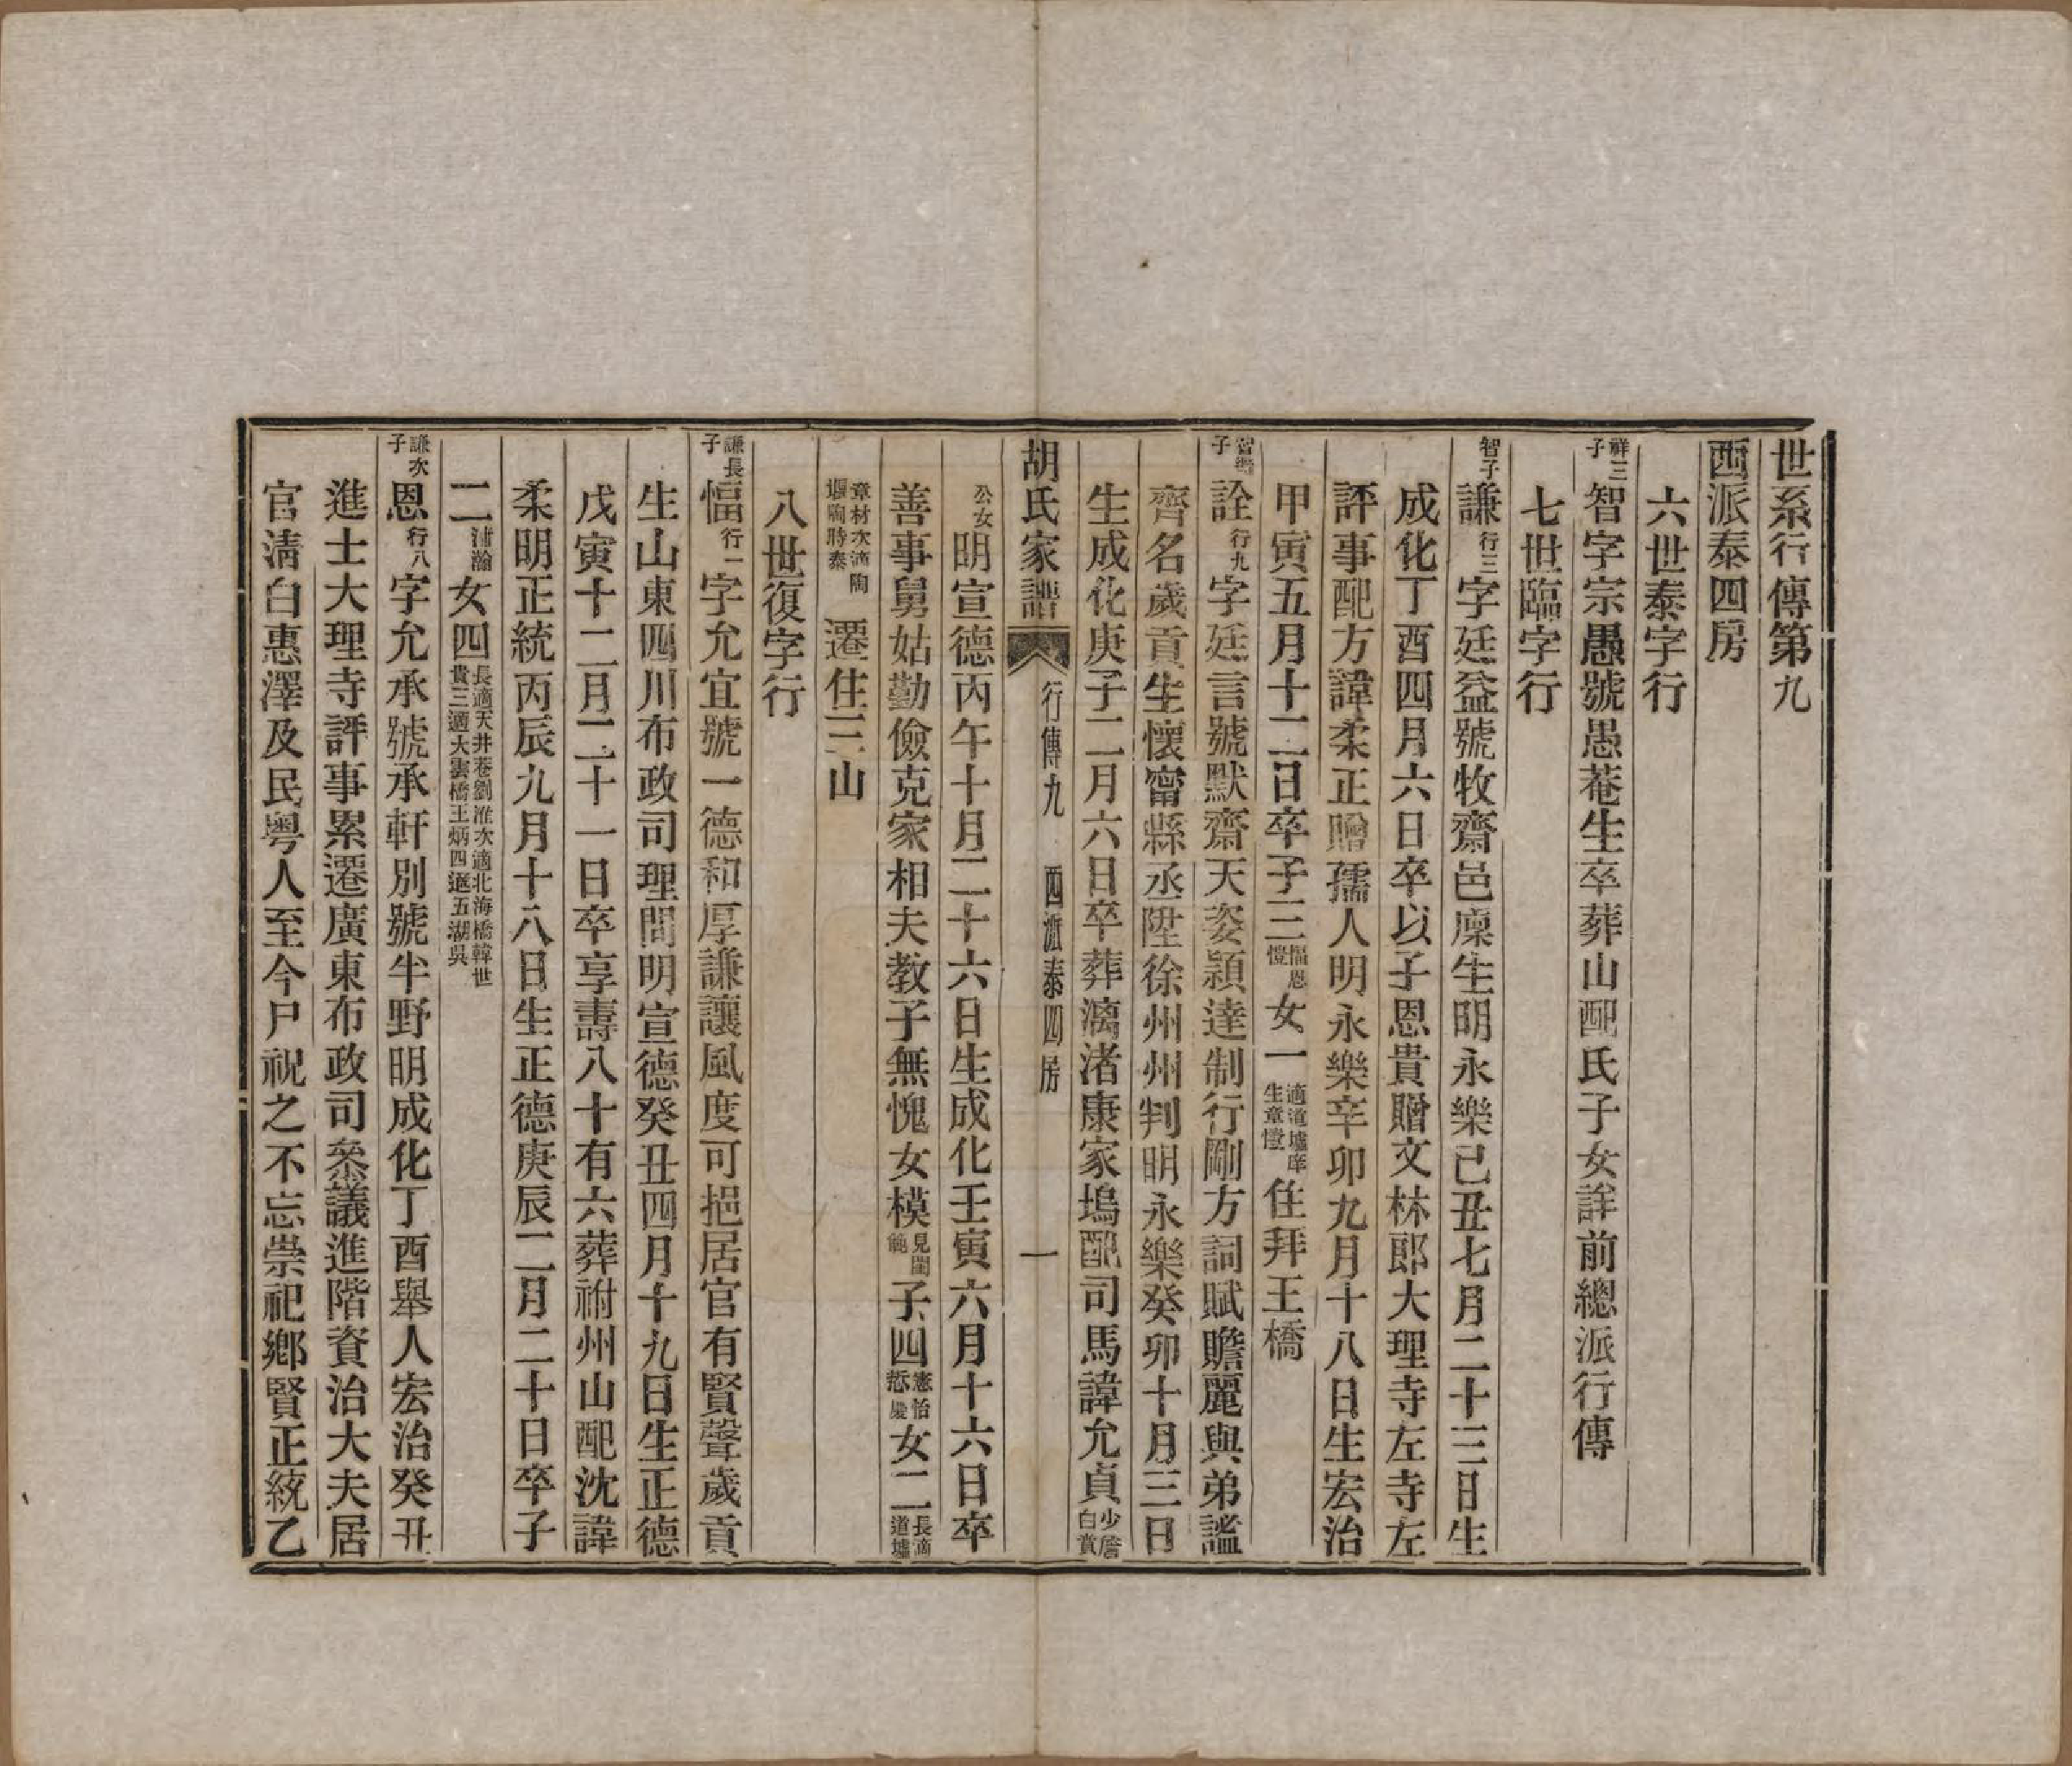 世系行傳第九
西派泰四房
六世泰字行
祥三子智字宗愚號愚菴生卒葬山配氏子女詳前總派行傳
七世臨字行
智子謙行三字廷益號牧齋邑廩生明永樂己丑七月二十三日生
成化丁酉四月六日卒以子恩貴贈文林郎大理寺左寺左
評事配方諱柔正贈孺人明永樂辛卯九月十八日生宏治
甲寅五月十二日卒子三愊恩愷女一適道墟庠生章愷住拜王橋
子詮行九字廷言號默齋天姿穎達制行剛方詞賦贍麗與弟謐
齊名歲貢生懷甯縣丞陞徐州州判明永樂癸卯十月三日
生成化庚子二月六日卒葬漓渚康家塢配司馬諱允貞少詹白賞
胡氏家譜 行傳九 西派泰四房 一
公女明宣德丙午十月二十六日生成化壬寅六月十六日卒
善事舅姑勤儉克家相夫教子無愧女模見閨範子四憲怡女二長適道墟
章材次適陶堰陶時泰 遷住三山
八世復字行
謙長子愊行一字允宜號一德和厚謙讓風度可挹居官有賢聲歲貢
生山東四川布政司理問明宣德癸丑四月十九日生正德
戊寅十二月二十一日卒享壽八十有六葬祔州山配沈諱
柔明正統丙辰九月十八日生正德庚辰二月二十日卒子
二浦瀚女四長適天井巷劉淮次適北海橋韓世貴三適大雲橋王炳四適五湖吳
謙次子恩行八字允承號承軒別號半野明成化丁酉舉人宏治癸丑
進士大理寺評事累遷廣東布政司叅議進階資治大夫居
官淸白惠澤及民粵人至今尸祝之不忘崇祀鄉賢正統乙